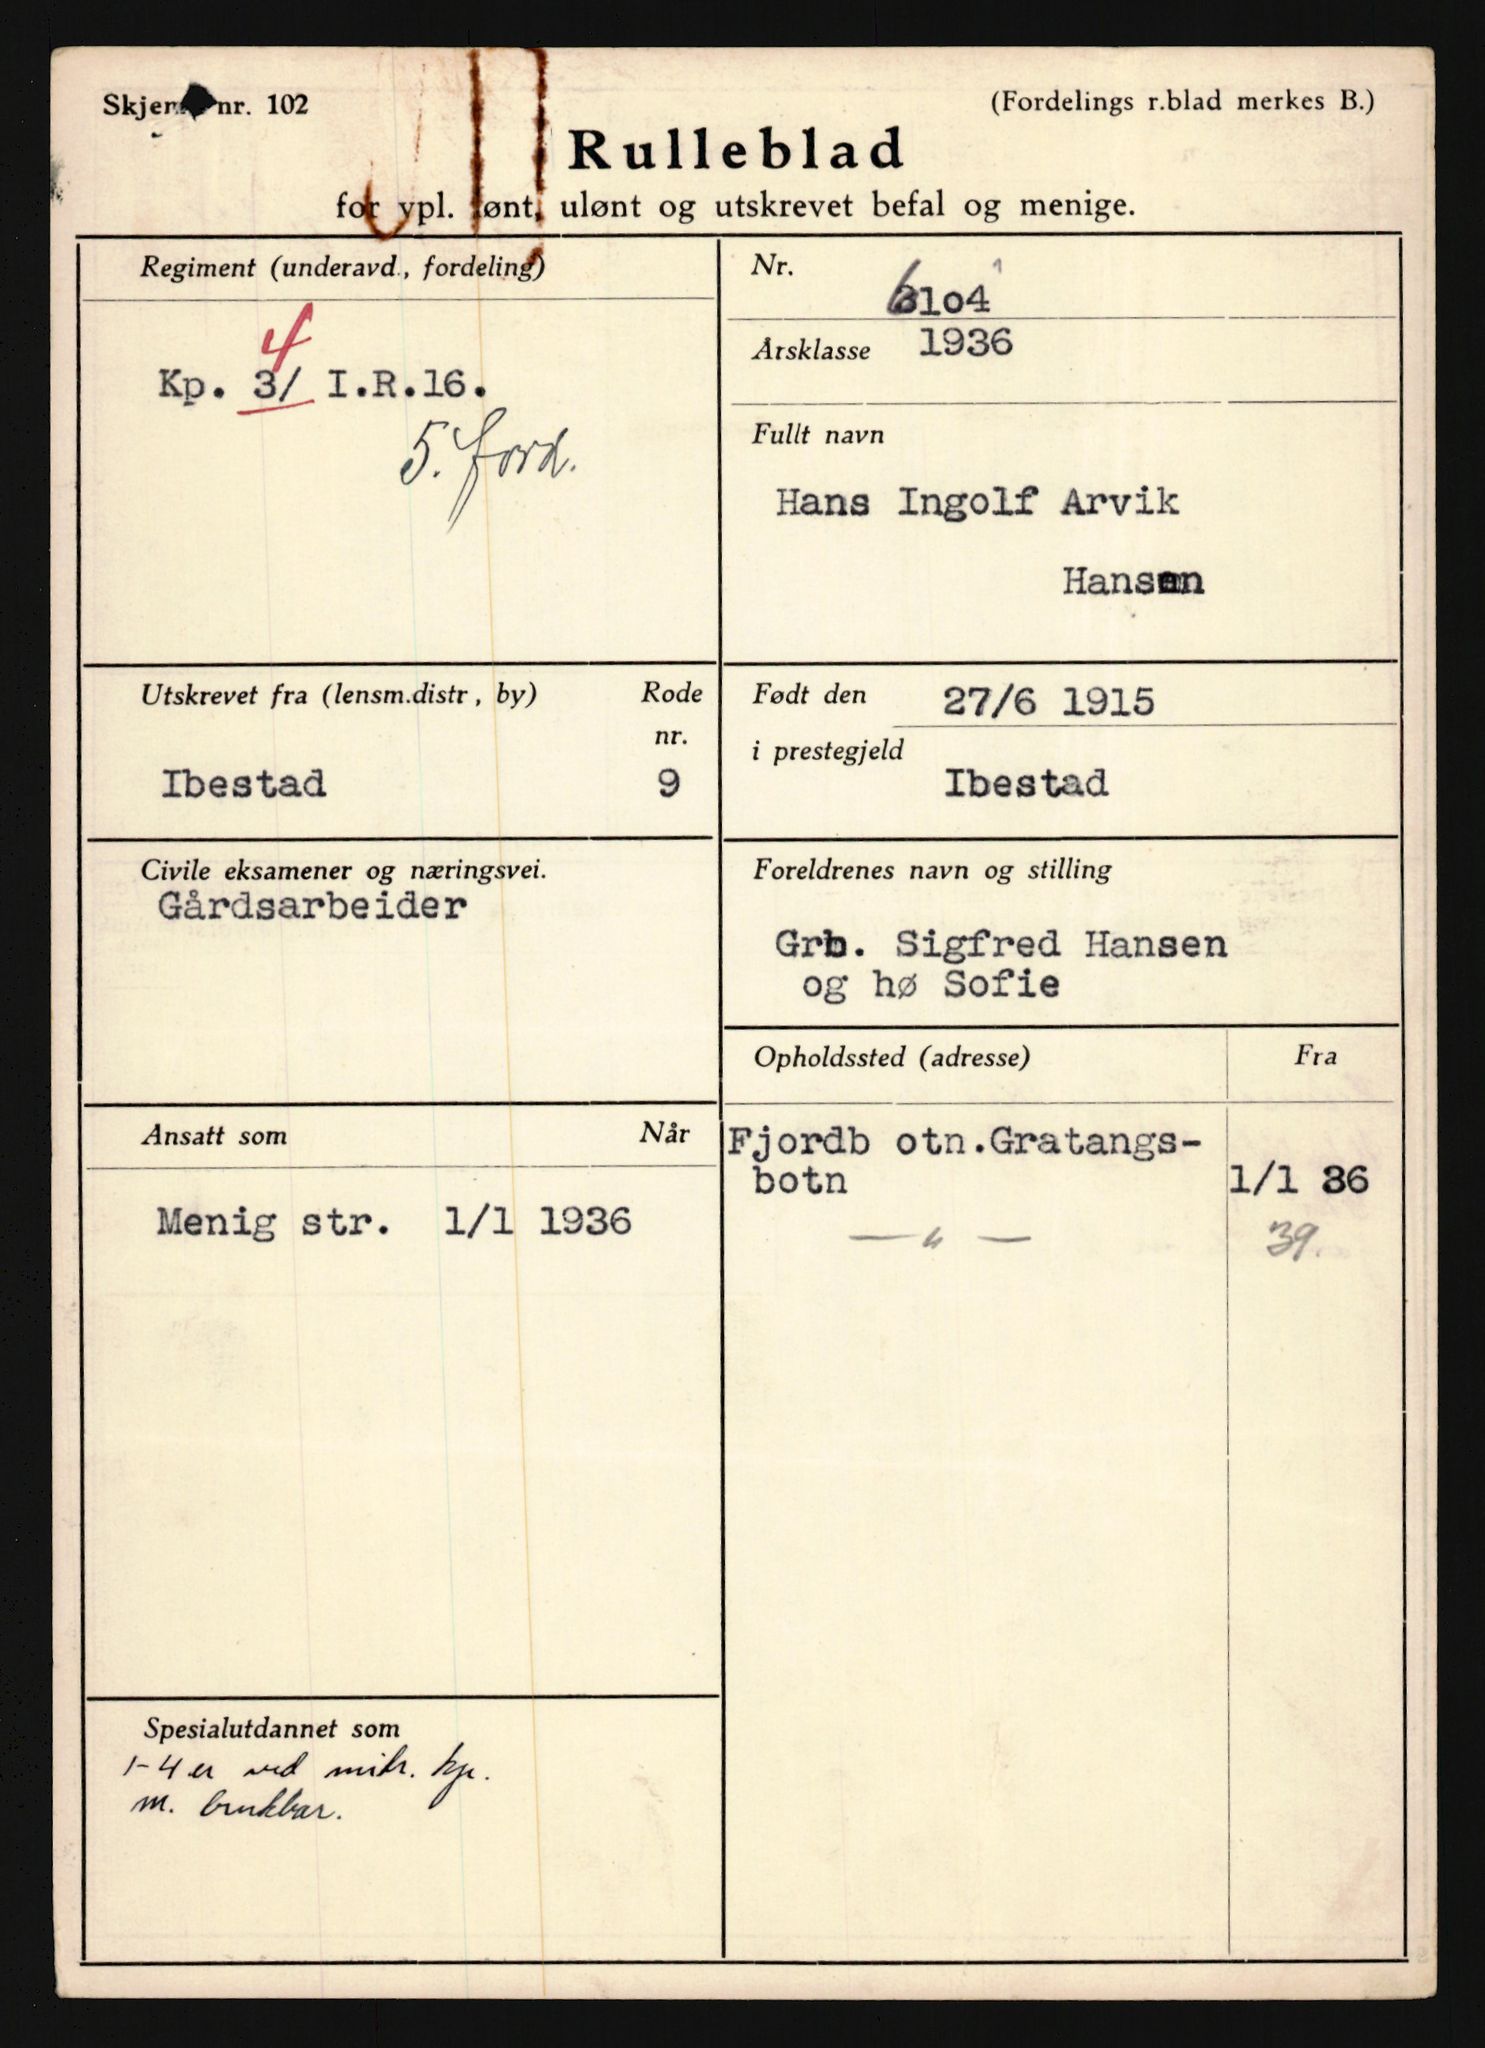 Skjema nr. 102
(Fordelings r.blad merkes B.)
Rulleblad
for vpl. lønt, ulønt og utskrevet befal og menige.
Regiment (underavd., fordeling)
4
Kp. 3/ I.R.16.
5. ford.
Nr.
6104
Årsklasse 1936
Fullt navn
Hans Ingolf Arvik
Hansen
Utskrevet fra (lensm.distr, by)
Rode
nr.
Ibestad 9
Født den 27/6 1915
i prestegjeld
Ibestad
Civile eksamener og næringsvei.
Gårdsarbeider
Foreldrenes navn og stilling
Grb. Sigfred Hansen
og hø Sofie
Opholdssted (adresse) Fra
Fjordb otn.Gratangs-
botn 1/1 36
— " — 39.
Ansatt som Når
Menig str. 1/1 1936
Spesialutdannet som
1-4 er ved mitr. kp.
m. brukbar.